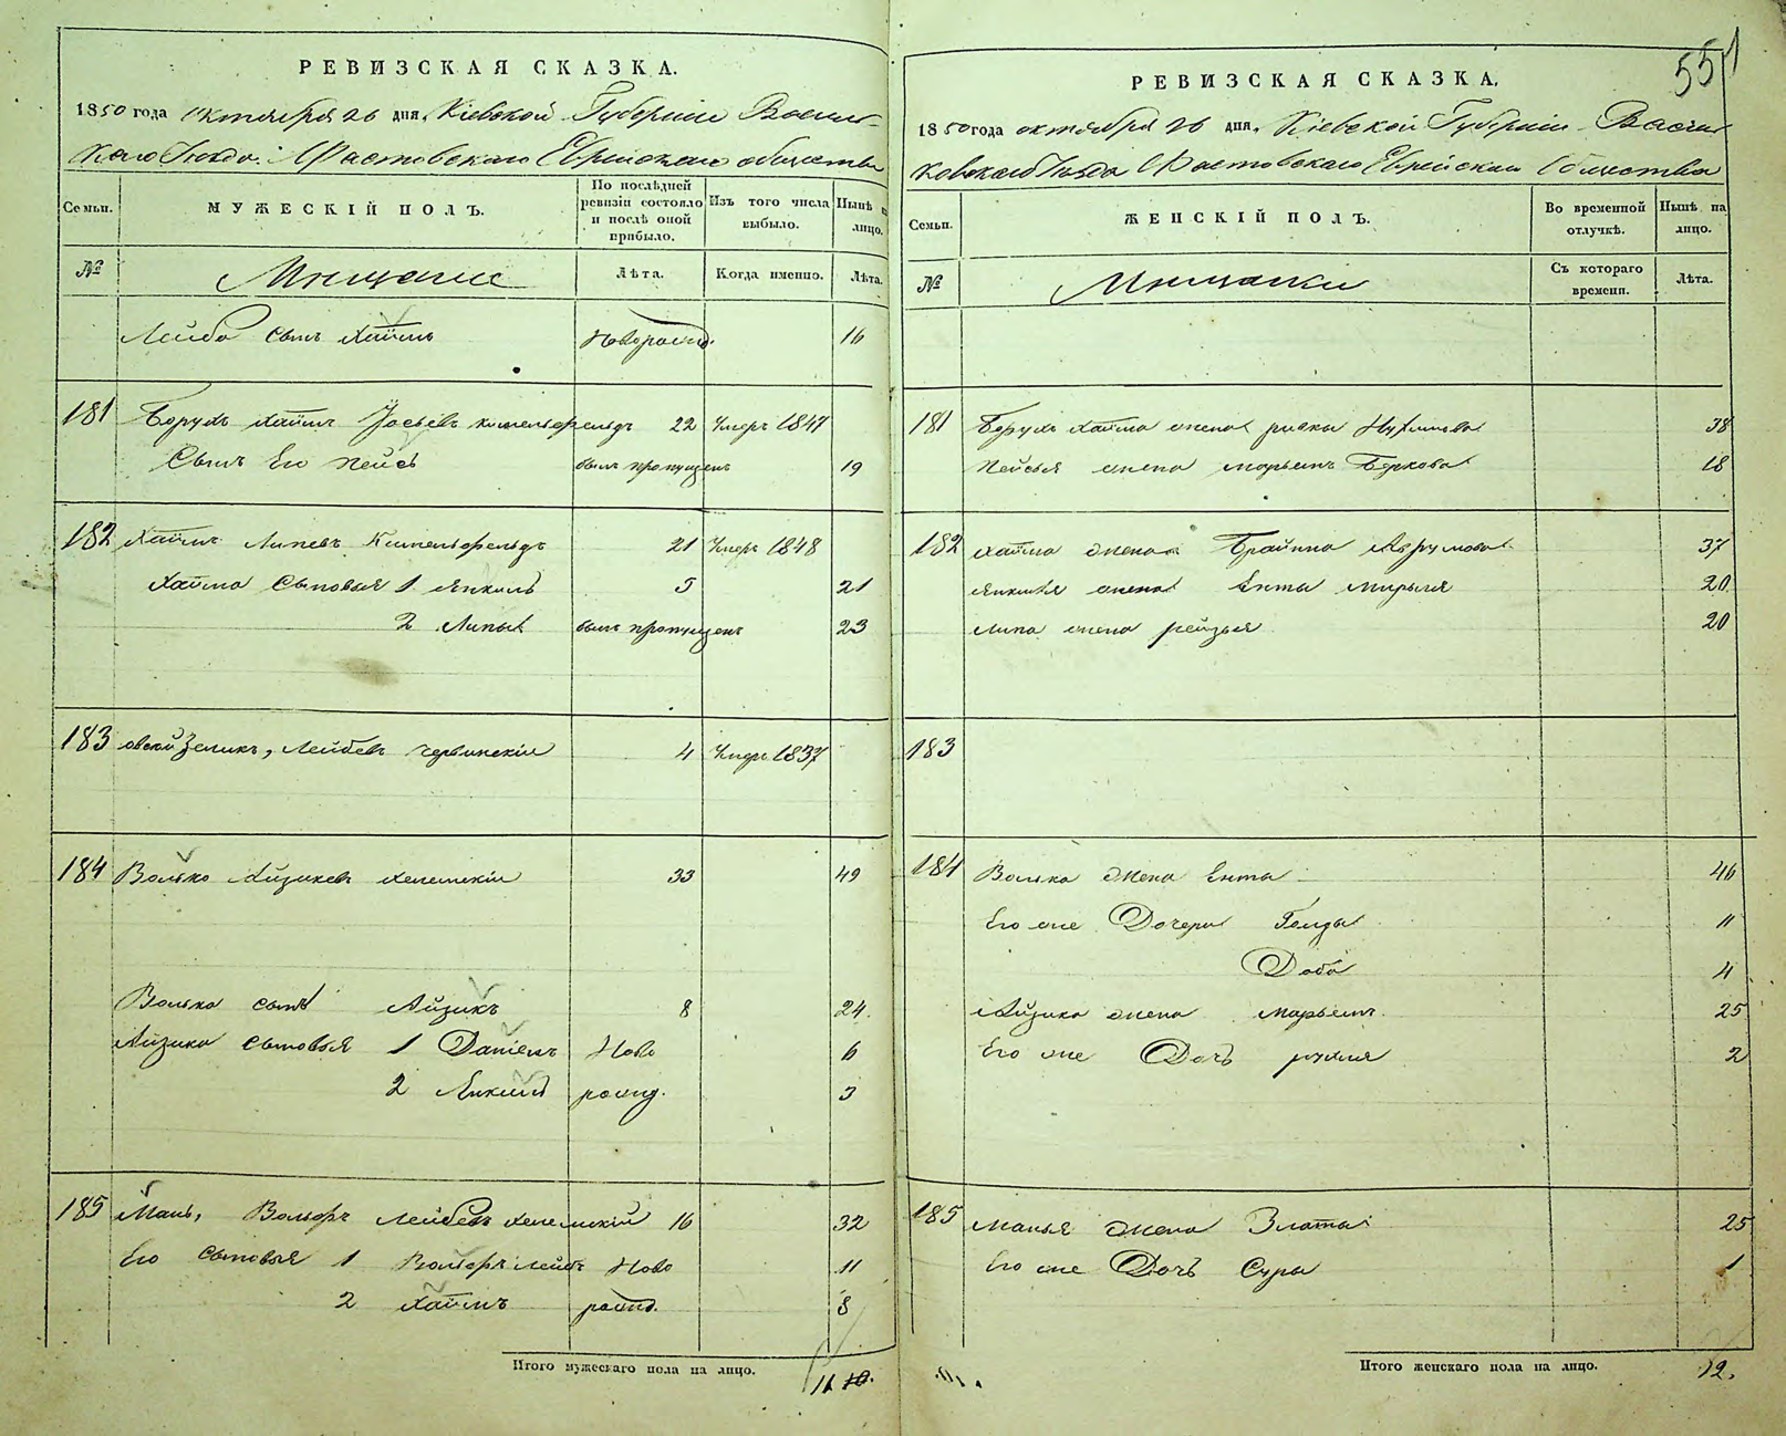 РЕВИЗСКАЯ СКАЗКА.
1850 года октября 26 дня, Кіевской Губерніи Василь-
каго Уѣзда Фастовскаго Еврейскаго общества
Семьи.
МУЖЕСКІЙ ПОЛЪ.
По послѣдней ревизіи состояло и послѣ оной прибыло.
Изъ того числа выбыло.
Нынѣ на лицо.
№
Мѣщане
Лѣта.
Когда именно.
Лѣта.
Лейба сынъ Хаимъ Новорожд. 16
181 Борухъ Хаимъ Іосьевъ Кимельфельдъ 22 Умеръ 1847
Сынъ Его Пейсъ былъ пропущенъ 19
182 Хаимъ Липевъ Кимельфельдъ 21 Умеръ 1848
Хаима Сыновья 1 Янкель 5 21
2 Липья былъ пропущенъ 23
183 овсей Зеликъ, Лейбевъ Червинскій 4 Умеръ 1837
184 Волько Айзиковъ Хелемскій 33 49
Волька сынъ Айзикъ 8 24.
Айзика Сыновья 1 Даніель Ново 6
2 Янкель рожд. 3
185 Мань, Вольфъ Лейбевъ Хелемскій 16 32
Его Сыновья 1 Вольфъ Лейбъ Ново 11
2 Хаимъ рожд. 8
Итого мужескаго пола на лицо.
11 10.
551
РЕВИЗСКАЯ СКАЗКА.
1850 года октября 26 дня, Кіевской Губерніи Васил-
ковскаго Уѣзда Фастовскаго Еврейскаго Общества
Семьи.
ЖЕНСКІЙ ПОЛЪ.
Во временной отлучкѣ.
Нынѣ на лицо.
№
Мѣщанки
Съ котораго времени.
Лѣта.
181 Борухъ Хаима жена Ривка Нухимова 38
Пейсья жена Марьемъ Беркова 18
182 Хаима жена Брайна Аврумова 37
Янкеля жена Ента Мирьля 20
Липа жена Рейзья 20
183
184 Волька жена Ента 46
Его же Дочери Голда 11
Доба 4
Айзика жена Марьемъ 25
Его же Дочь Рухля 2
185 Манья жена Злата 25
Его же Дочь Сура 1
Итого женскаго пола на лицо.
12.